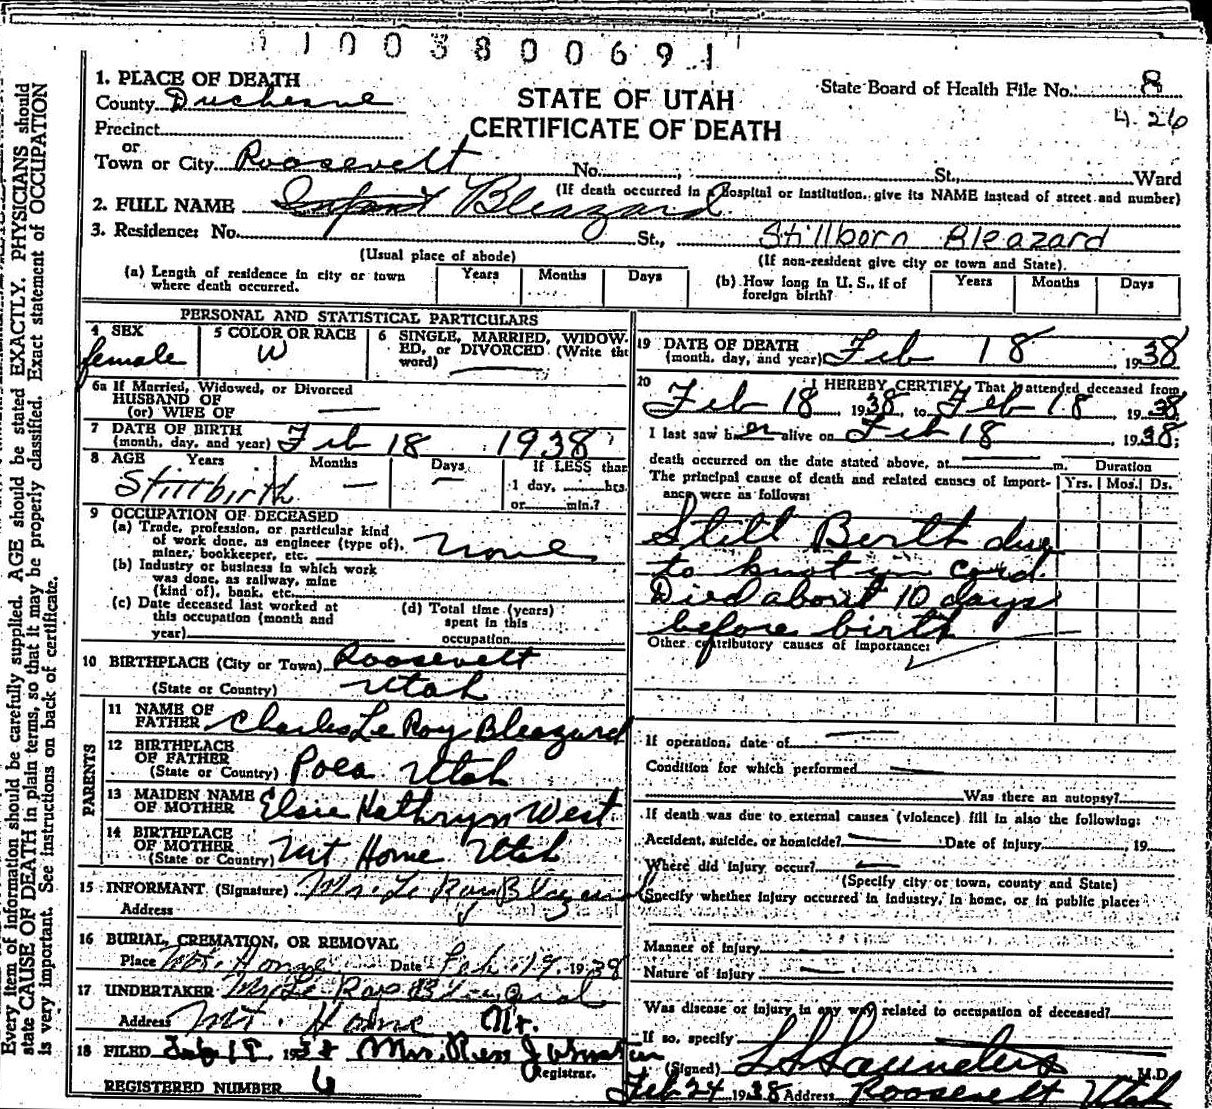 1003800691
1. PLACE OF DEATH
County Duchesne
STATE OF UTAH
State Board of Health File No. 8
4.26
Precinct
or
CERTIFICATE OF DEATH
Town or City Roosevelt No. St., Ward
(If death occurred in a hospital or institution, give its NAME instead of street and number)
2. FULL NAME Infant Bleazard
3. Residence: No. St., Stillborn Bleazard
(Usual place of abode) (If non-resident give city or town and State).
(a) Length of residence in city or town where death occurred. Years Months Days
(b) How long in U. S., if of foreign birth? Years Months Days
PERSONAL AND STATISTICAL PARTICULARS
4 SEX female
5 COLOR OR RACE W
6 SINGLE, MARRIED, WIDOWED, or DIVORCED (Write the word)
6a If Married, Widowed, or Divorced
HUSBAND OF
(or) WIFE OF —
7 DATE OF BIRTH
(month, day, and year) Feb 18 1938
8 AGE Years Months Days If LESS than
Stillbirth — — 1 day, hrs.
or min.?
9 OCCUPATION OF DECEASED
(a) Trade, profession, or particular kind
of work done, as engineer (type of),
miner, bookkeeper, etc. none
(b) Industry or business in which work
was done, as railway, mine
(kind of), bank, etc.
(c) Date deceased last worked at
this occupation (month and
year)
(d) Total time (years)
spent in this
occupation
10 BIRTHPLACE (City or Town) Roosevelt
(State or Country) Utah
PARENTS
11 NAME OF
FATHER Charles Le Roy Bleazard
12 BIRTHPLACE
OF FATHER
(State or Country) Poea Utah
13 MAIDEN NAME
OF MOTHER Elsie Kathryn West
14 BIRTHPLACE
OF MOTHER
(State or Country) Mt Home Utah
15 INFORMANT (Signature) Mr. Le Roy Bleazard
Address
16 BURIAL, CREMATION, OR REMOVAL
Place Mt. Home Date Feb. 19. 1938
17 UNDERTAKER Mr. Le Roy Bleazard
Address Mt. Home Ut.
18 FILED Feb 19 1938 Mrs. Ren Johnston
Registrar.
REGISTERED NUMBER 6
19 DATE OF DEATH
(month, day, and year) Feb 18 1938
20 I HEREBY CERTIFY, That I attended deceased from
Feb 18 1938, to Feb 18, 1938.
I last saw her alive on Feb 18, 1938;
death occurred on the date stated above, at m.
The principal cause of death and related causes of importance were as follows:
Duration
Yrs. Mos. Ds.
Still Berth due
to knot in cord.
Died about 10 days
before birth
Other contributory causes of importance:
If operation, date of —
Condition for which performed —
Was there an autopsy?
If death was due to external causes (violence) fill in also the following:
Accident, suicide, or homicide? — Date of injury , 19
Where did injury occur? —
(Specify city or town, county and State)
Specify whether injury occurred in industry, in home, or in public place:
Manner of injury —
Nature of injury —
Was disease or injury in any way related to occupation of deceased?
If so, specify
(Signed) L. S. Saunders M.D.
Feb 24 1938 Address Roosevelt Utah
Every item of information should be carefully supplied. AGE should be stated EXACTLY. PHYSICIANS should
state CAUSE OF DEATH in plain terms, so that it may be properly classified. Exact statement of OCCUPATION
is very important. See instructions on back of certificate.